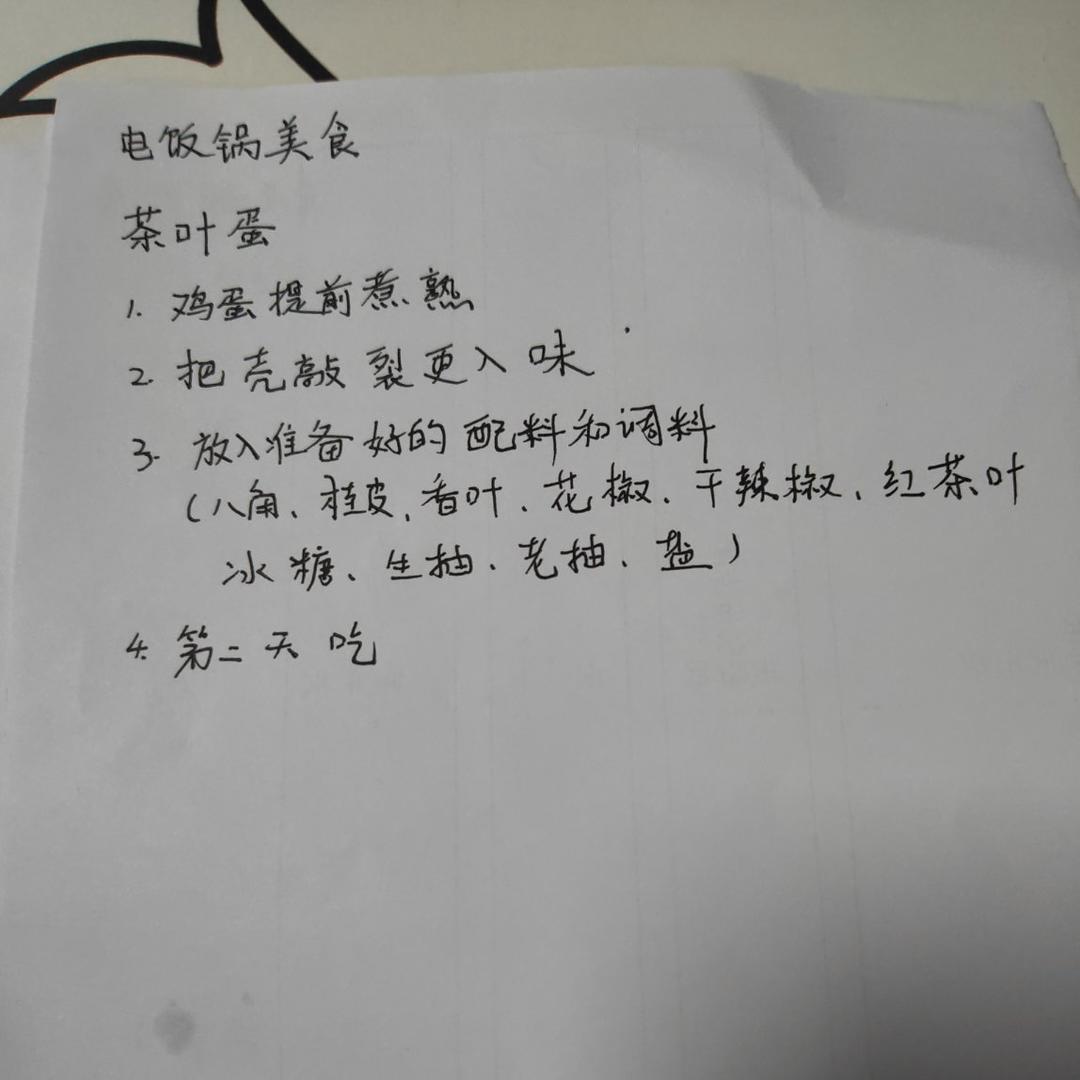 电饭锅美食
茶叶蛋
1. 鸡蛋提前煮熟
2. 把壳敲裂更入味
3. 放入准备好的配料和调料
(八角、桂皮、香叶、花椒、干辣椒、红茶叶
冰糖、生抽、老抽、盐)
4. 第二天吃